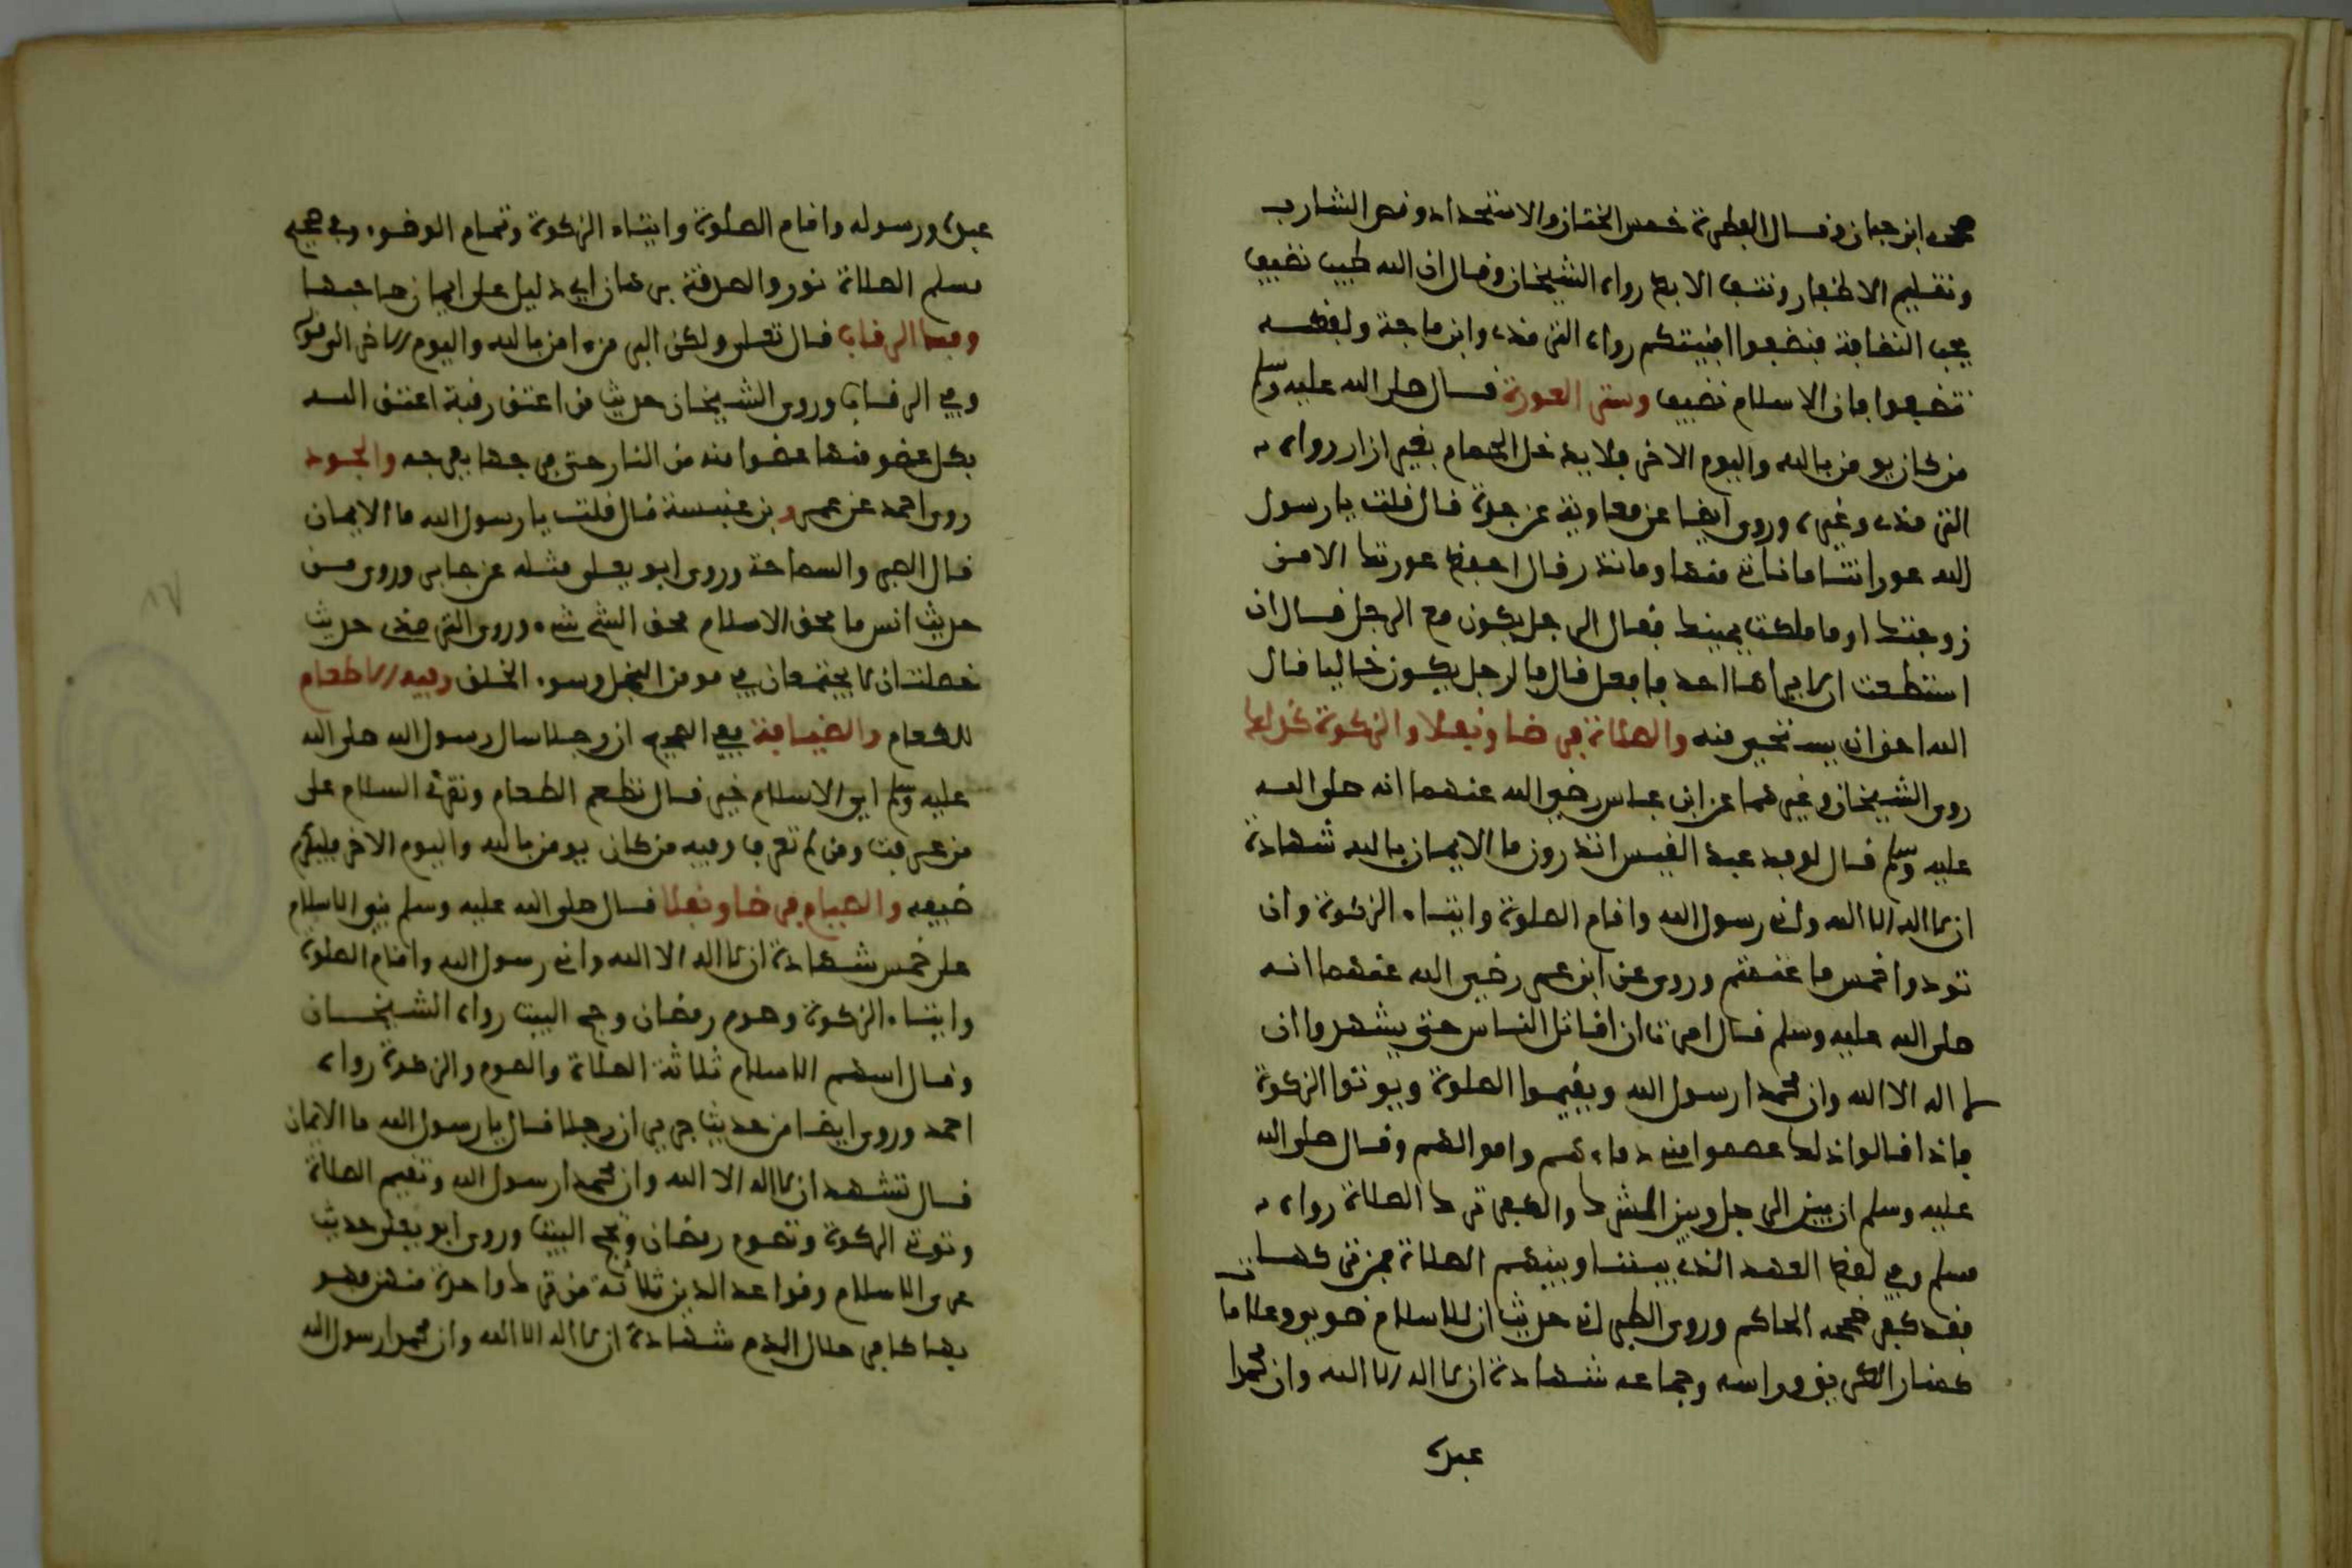 صححه ابن حبان وقال الفطرة خمس الختان والاستحداد وقص الشارب
وتقليم الاظفار ونتف الابط رواه الشيخان وقال ان الله طيب نظيف
يحب النظافة فنظفوا افنيتكم رواه الترمذي وابن ماجة ولفظه
تنظفوا فان الاسلام نظيف وستر العورة قال صلى الله عليه وسلم
من كان يومن بالله واليوم الاخر فلا يدخل الحمام بغير ازار رواه
الترمذي وغيره وروى ايضا عن معاوية عن جده قال قلت يا رسول
الله عوراتنا ما ناتي منها وما نذر قال احفظ عورتك الا من
زوجتك او ما ملكت يمينك فقال الرجل يكون مع الرجل قال ان
استطعت ان لا يراها احد فافعل قال فالرجل يكون خاليا قال
الله احق ان يستحيى منه والصلاة فرضا ونفلا والزكوة كذلك
روى الشيخان وغيرهما عن ابن عباس رضي الله عنهما انه صلى الله
عليه وسلم قال لوفد عبد القيس اتدرون ما الايمان بالله شهادة
ان لا اله الا الله واني رسول الله واقام الصلوة وايتاء الزكوة وان
تودوا خمس ما غنمتم وروى عن ابن عمر رضي الله عنهما انه
صلى الله عليه وسلم قال امرت ان اقاتل الناس حتى يشهدوا ان
لا اله الا الله وان محمدا رسول الله ويقيموا الصلوة ويوتوا الزكوة
فاذا قالوا ذلك عصموا مني دماءهم واموالهم وقال صلى الله
عليه وسلم ان بين الرجل وبين الشرك والكفر ترك الصلاة رواه
مسلم وفي لفظ العهد الذي بيننا وبينهم الصلاة فمن تركها
فقد كفر صححه الحاكم وروى الطبراني حديث ان للاسلام صوى وعلاما
كمنار الطريق وراسه وجماعه شهادة ان لا اله الا الله وان محمدا
عبده
عبده ورسوله واقام الصلوة وايتاء الزكوة وتمام الوضوء وفي صحيح
مسلم الصلاة نور والصدقة برهان اي دليل على ايمان صاحبها
وفك الرقاب قال تعلى ولكن البر من ءامن بالله واليوم الاخر الى قوله
وفي الرقاب وروى الشيخان حديث من اعتق رقبة اعتق الله
بكل عضو منها عضوا منه من النار حتى فرجها بفرجه والجود
روى احمد عن عمرو بن عنبسة قال قلت يا رسول الله ما الايمان
قال الصبر والسماحة وروى ابو يعلى مثله عن جابر وروى من
حديث انس ما محق الاسلام محق الشح شيء وروى الترمذي حديث
خصلتان لا يجتمعان في مومن البخل وسوء الخلق وفيه الاطعام
للطعام والضيافة ففي الصحيح ان رجلا سال رسول الله صلى الله
عليه وسلم اي الاسلام خير قال تطعم الطعام وتقرئ السلام على
من عرفت ومن لم تعرف وفيه من كان يومن بالله واليوم الاخر فليكرم
ضيفه والصيام فرضا ونفلا قال صلى الله عليه وسلم بني الاسلام
على خمس شهادة ان لا اله الا الله واني رسول الله واقام الصلوة
وايتاء الزكوة وصوم رمضان وحج البيت رواه الشيخان
وقال اسهم الاسلام ثلاثة الصلاة والصوم والزكوة رواه
احمد وروى ايضا من حديث جرير ان رجلا قال يا رسول الله ما الايمان
قال تشهد ان لا اله الا الله وان محمدا رسول الله وتقيم الصلاة
وتوتي الزكوة وتصوم رمضان وتحج البيت وروى ابو يعلى حديث
عرى الاسلام وقواعد الدين ثلاثة من ترك واحدة منهن فهو
بها كافر حلال الدم شهادة ان لا اله الا الله وان محمدا رسول الله